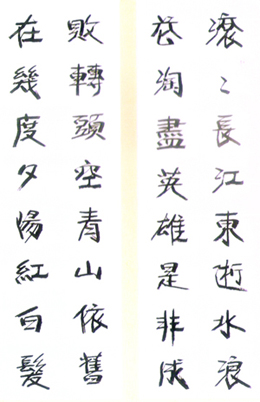 滾〻長江東逝水浪
花淘盡英雄是非成
敗轉頭空青山依舊
在幾度夕陽紅白髮